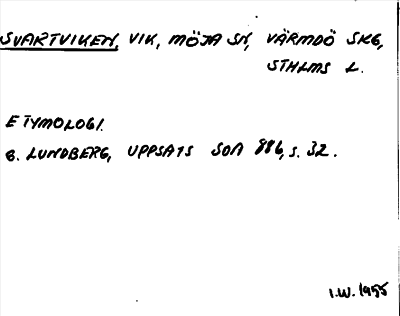 SVARTVIKEN, VIK, MÖJA SN, VÄRMDÖ SKG,
STHLMS L.
ETYMOLOGI.
B. LUNDBERG, UPPSATS SOA 886, S. 32.
I.W. 1955